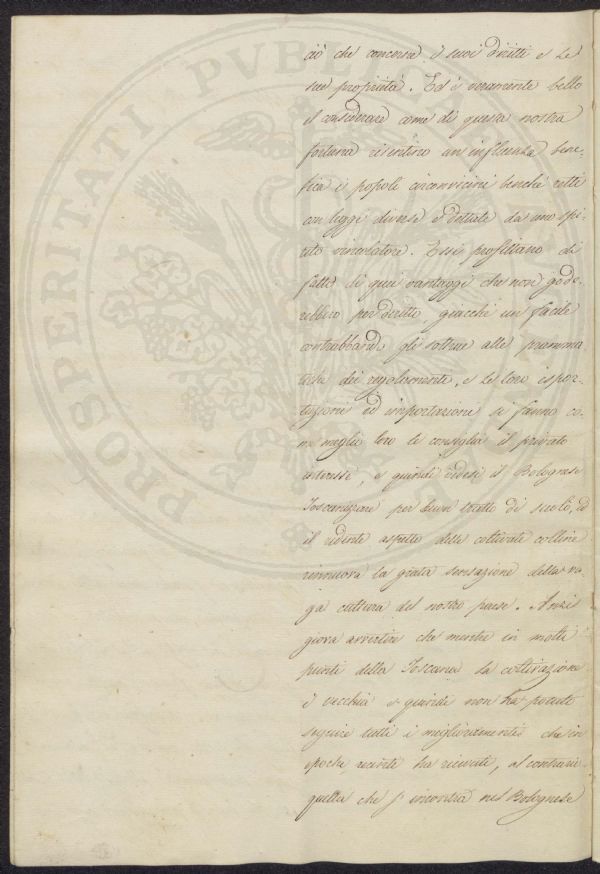 ciò che concerne i suoi diritti e le
sue proprietà. Ed è veramente bello
il considerare come di questa nostra
fortuna risentino un'influenza bene-
fica i popoli circonvicini benchè retti
con leggi diverse e dettate da uno spi-
rito vincolatore. Essi profittano di
fatto di quei vantaggi che non gode-
rebbero per diritto giacchè un facile
contrabbando gli sottrae alle
dei regolamenti, e le loro espor-
tazioni ed importazioni si fanno co-
me meglio loro le consiglia il privato
interesse, e quindi vedesi il Bolognese
Toscanizzare per buon tratto di suolo, ed
il ridente aspetto delle coltivate colline
rinnuova la grata sensazione della va-
ga cultura del nostro paese. Anzi
giova avvertire che mentre in molti
punti della Toscana la coltivazione
è vecchia e quindi non ha potuto
seguire tutti i miglioramenti che in
epoche recenti ha ricevute, al contrario
quella che s'incontra nel Bolognese
PROSPERITATI PVBLICAE